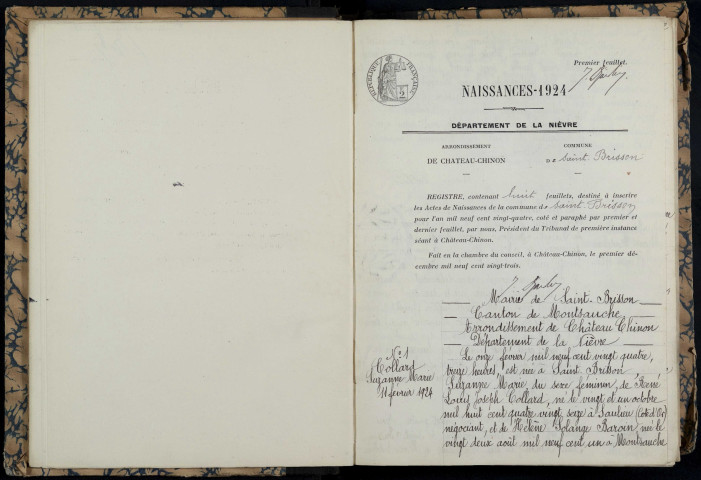 Premier feuillet.
RÉPUBLIQUE FRANÇAISE
2
NAISSANCES-1924
DÉPARTEMENT DE LA NIÈVRE
ARRONDISSEMENT
DE CHATEAU-CHINON
COMMUNE
DE Saint Brisson
REGISTRE, contenant huit feuillets, destiné à inscrire
les Actes de Naissances de la commune de Saint-Brisson
pour l'an mil neuf cent vingt-quatre, coté et paraphé par premier et
dernier feuillet, par nous, Président du Tribunal de première instance
séant à Château-Chinon.
Fait en la chambre du conseil, à Château-Chinon, le premier dé-
cembre mil neuf cent vingt-trois.
Mairie de Saint-Brisson
Canton de Montsauche
Arrondissement de Château Chinon
Département de la Nièvre
N° 1
Collard
Suzanne Marie
11 février 1924
Le onze février mil neuf cent vingt quatre,
treize heures, est née à Saint Brisson
Suzanne Marie, du sexe féminin, de René
Louis Joseph Collard, né le vingt et un octobre
mil huit cent quatre vingt seize à Saulieu (Côte d'Or)
négociant, et de Hélène Solange Baroin, née le
vingt deux août mil neuf cent un à Montsauche